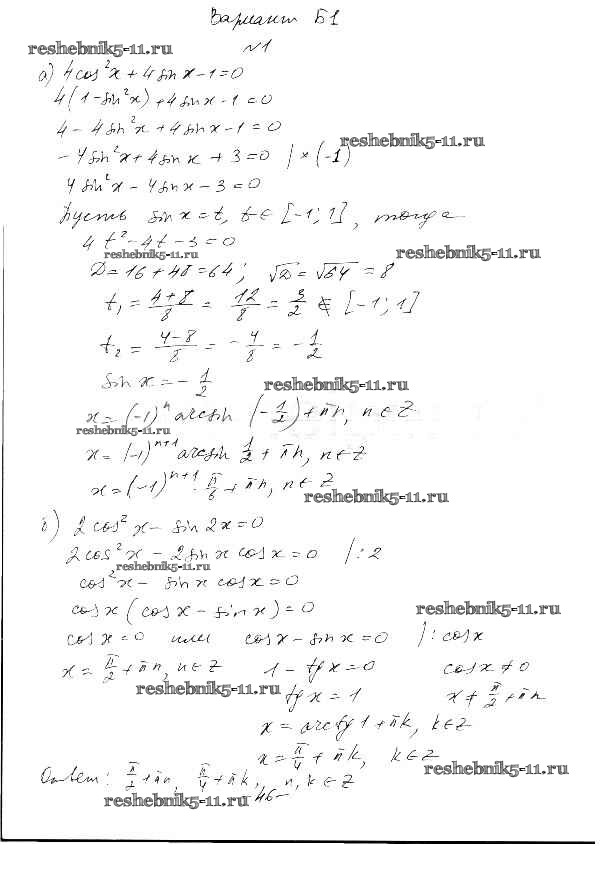 Вариант Б1
reshebnik5-11.ru
№1
а) 4cos²x + 4sin x - 1 = 0
4(1 - sin²x) + 4sin x - 1 = 0
4 - 4sin²x + 4sin x - 1 = 0
reshebnik5-11.ru
- 4sin²x + 4sin x + 3 = 0 | × (-1)
4sin²x - 4sin x - 3 = 0
Пусть sin x = t, t ∈ [-1; 1], тогда
4t² - 4t - 3 = 0
reshebnik5-11.ru reshebnik5-11.ru
D = 16 + 48 = 64; √D = √64 = 8
t₁ = (4+8)/8 = 12/8 = 3/2 ∉ [-1; 1]
t₂ = (4-8)/8 = -4/8 = -1/2
sin x = -1/2
reshebnik5-11.ru
x = (-1)ⁿ arcsin (-1/2) + πn, n ∈ Z
reshebnik5-11.ru
x = (-1)ⁿ⁺¹ arcsin 1/2 + πn, n ∈ Z
x = (-1)ⁿ⁺¹ · π/6 + πn, n ∈ Z
reshebnik5-11.ru
б) 2cos²x - sin 2x = 0
2cos²x - 2sin x cos x = 0 | : 2
reshebnik5-11.ru
cos²x - sin x cos x = 0
cos x (cos x - sin x) = 0
reshebnik5-11.ru
cos x = 0 или cos x - sin x = 0 | : cos x
x = π/2 + πn, n ∈ Z 1 - tg x = 0 cos x ≠ 0
reshebnik5-11.ru
tg x = 1 x ≠ π/2 + πn
x = arctg 1 + πk, k ∈ Z
x = π/4 + πk, k ∈ Z
reshebnik5-11.ru
Ответ: π/2 + πn, π/4 + πk, n, k ∈ Z
reshebnik5-11.ru
-46-